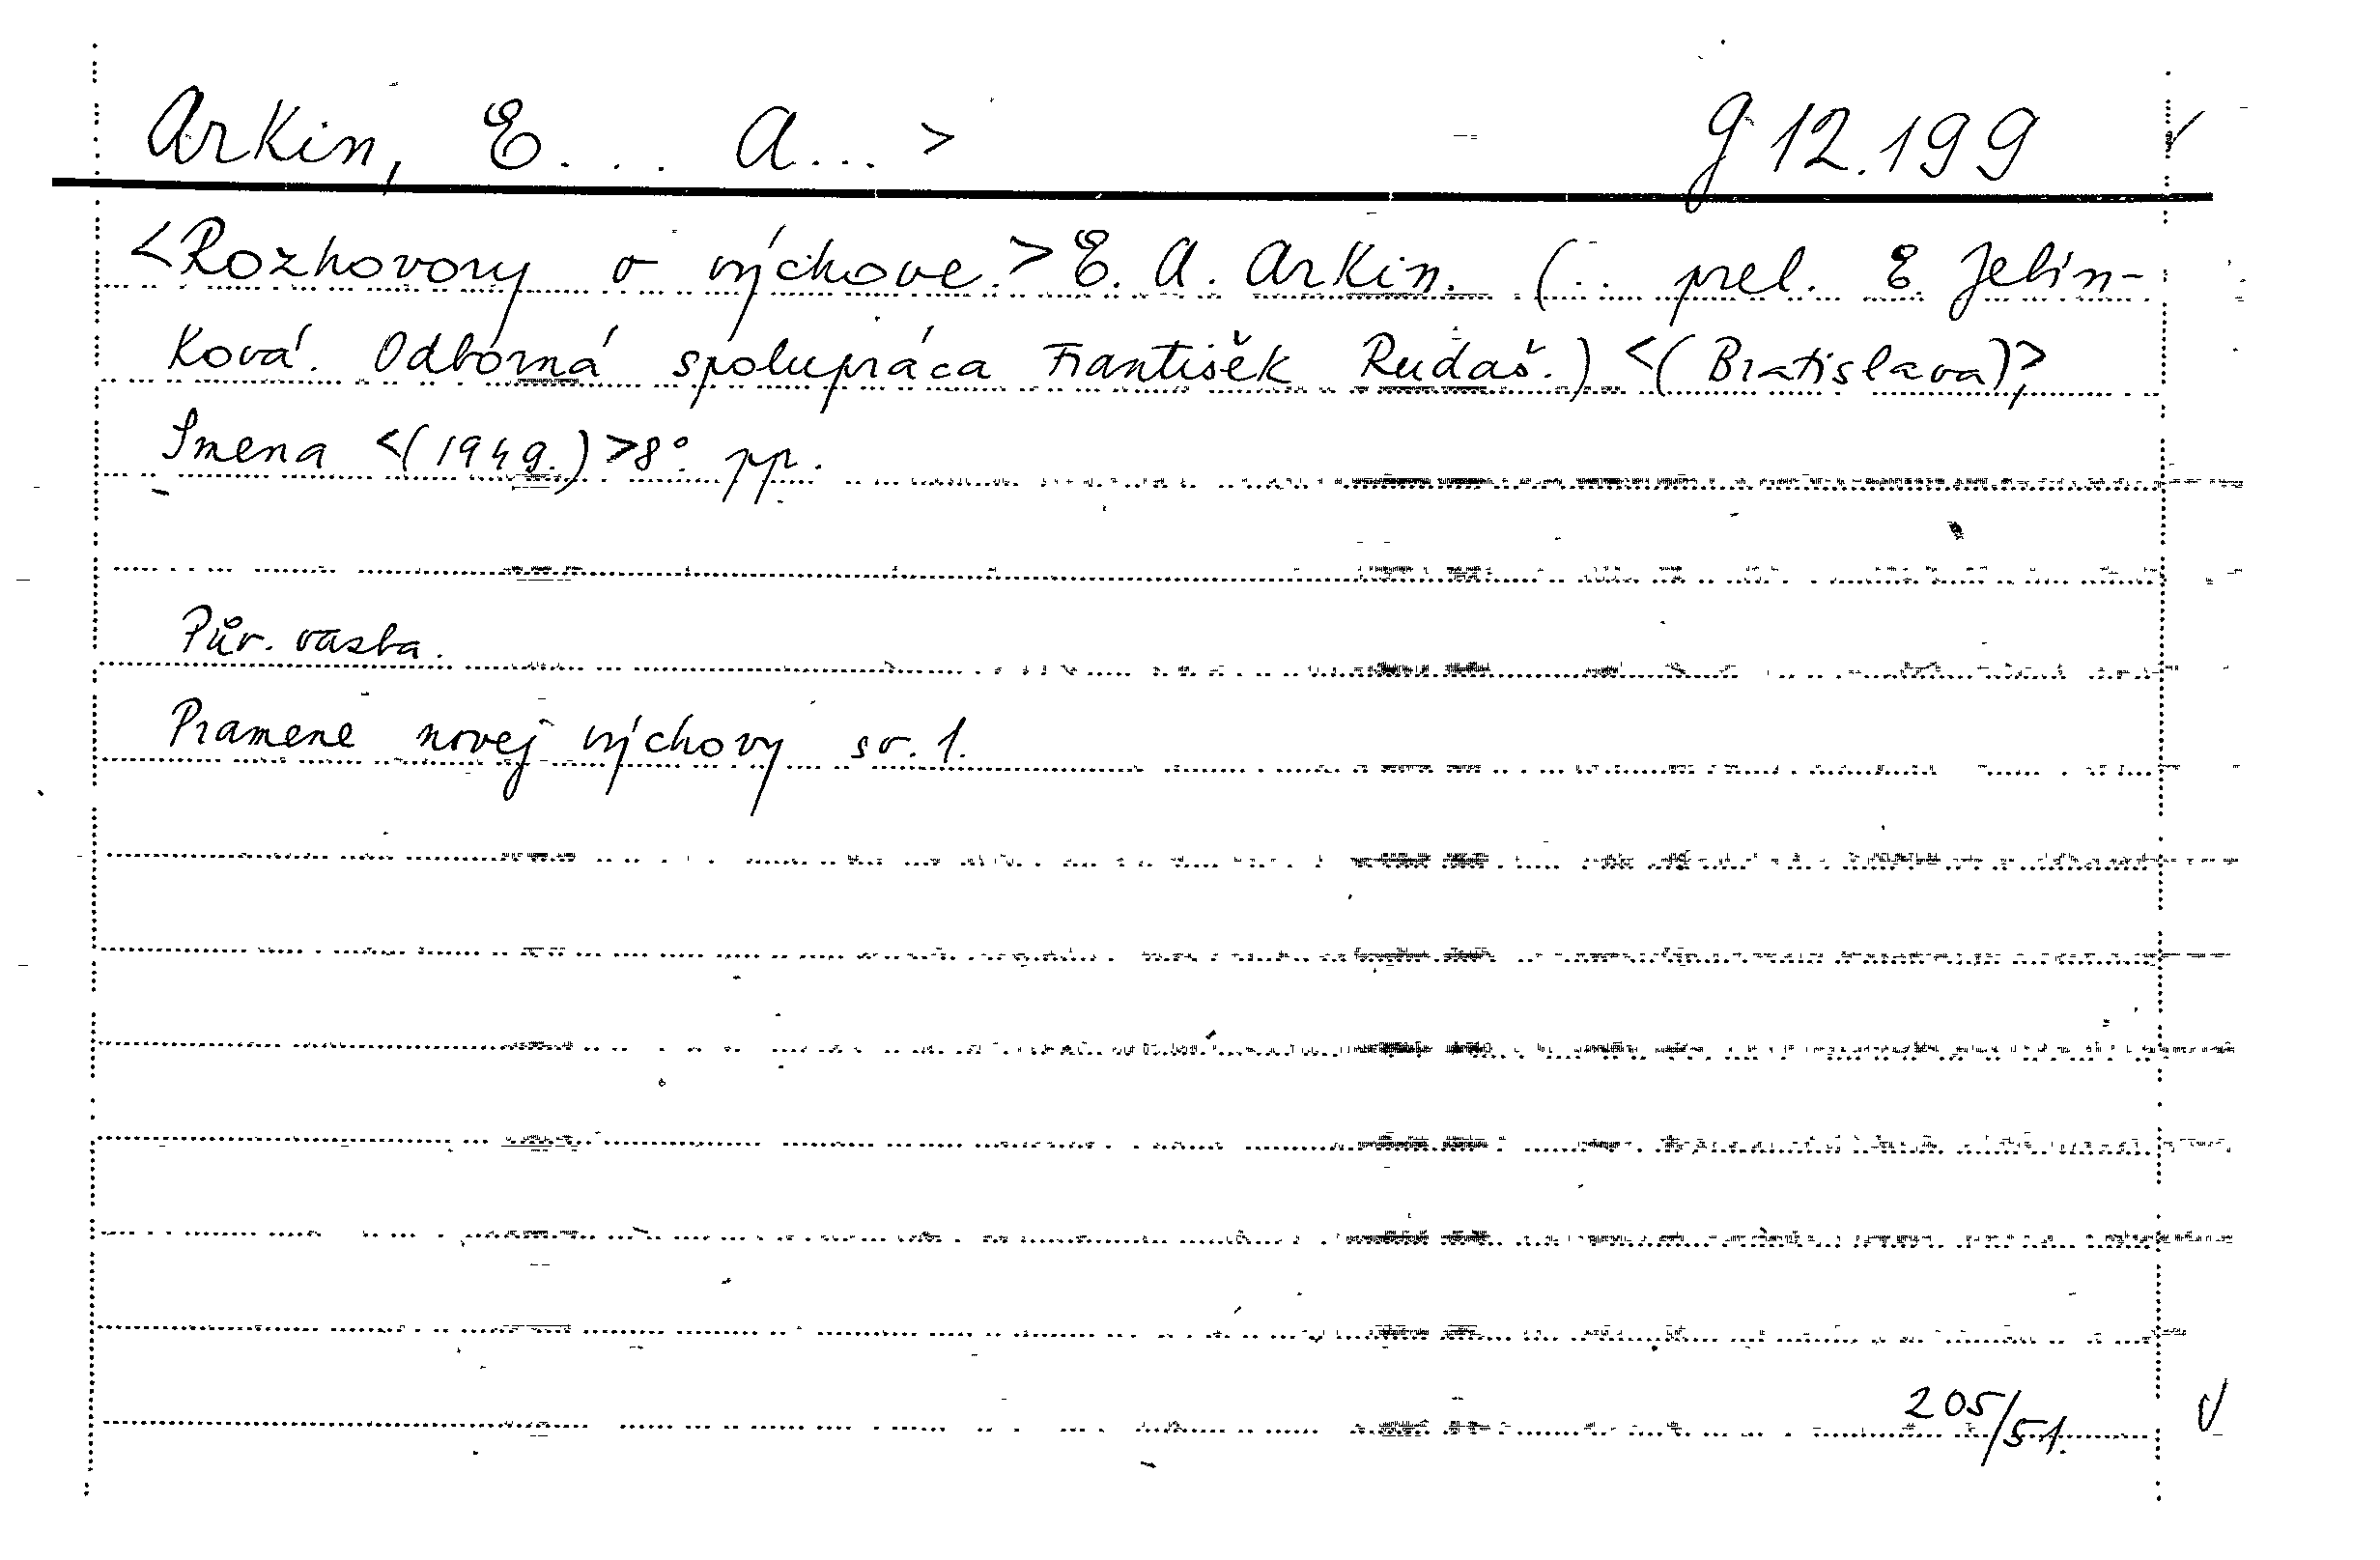 Arkin, E... A...> g 12.199 ✓
<Rozhovory o výchove.> E. A. Arkin. (.. prel. E. Jelín-
ková. Odborná spolupráca František Rudaš.) <(Bratislava)>,
Smena <(1949.)> 8°. pp.
Pův. vazba.
Pramene novej výchovy sv. 1.
205/51. √